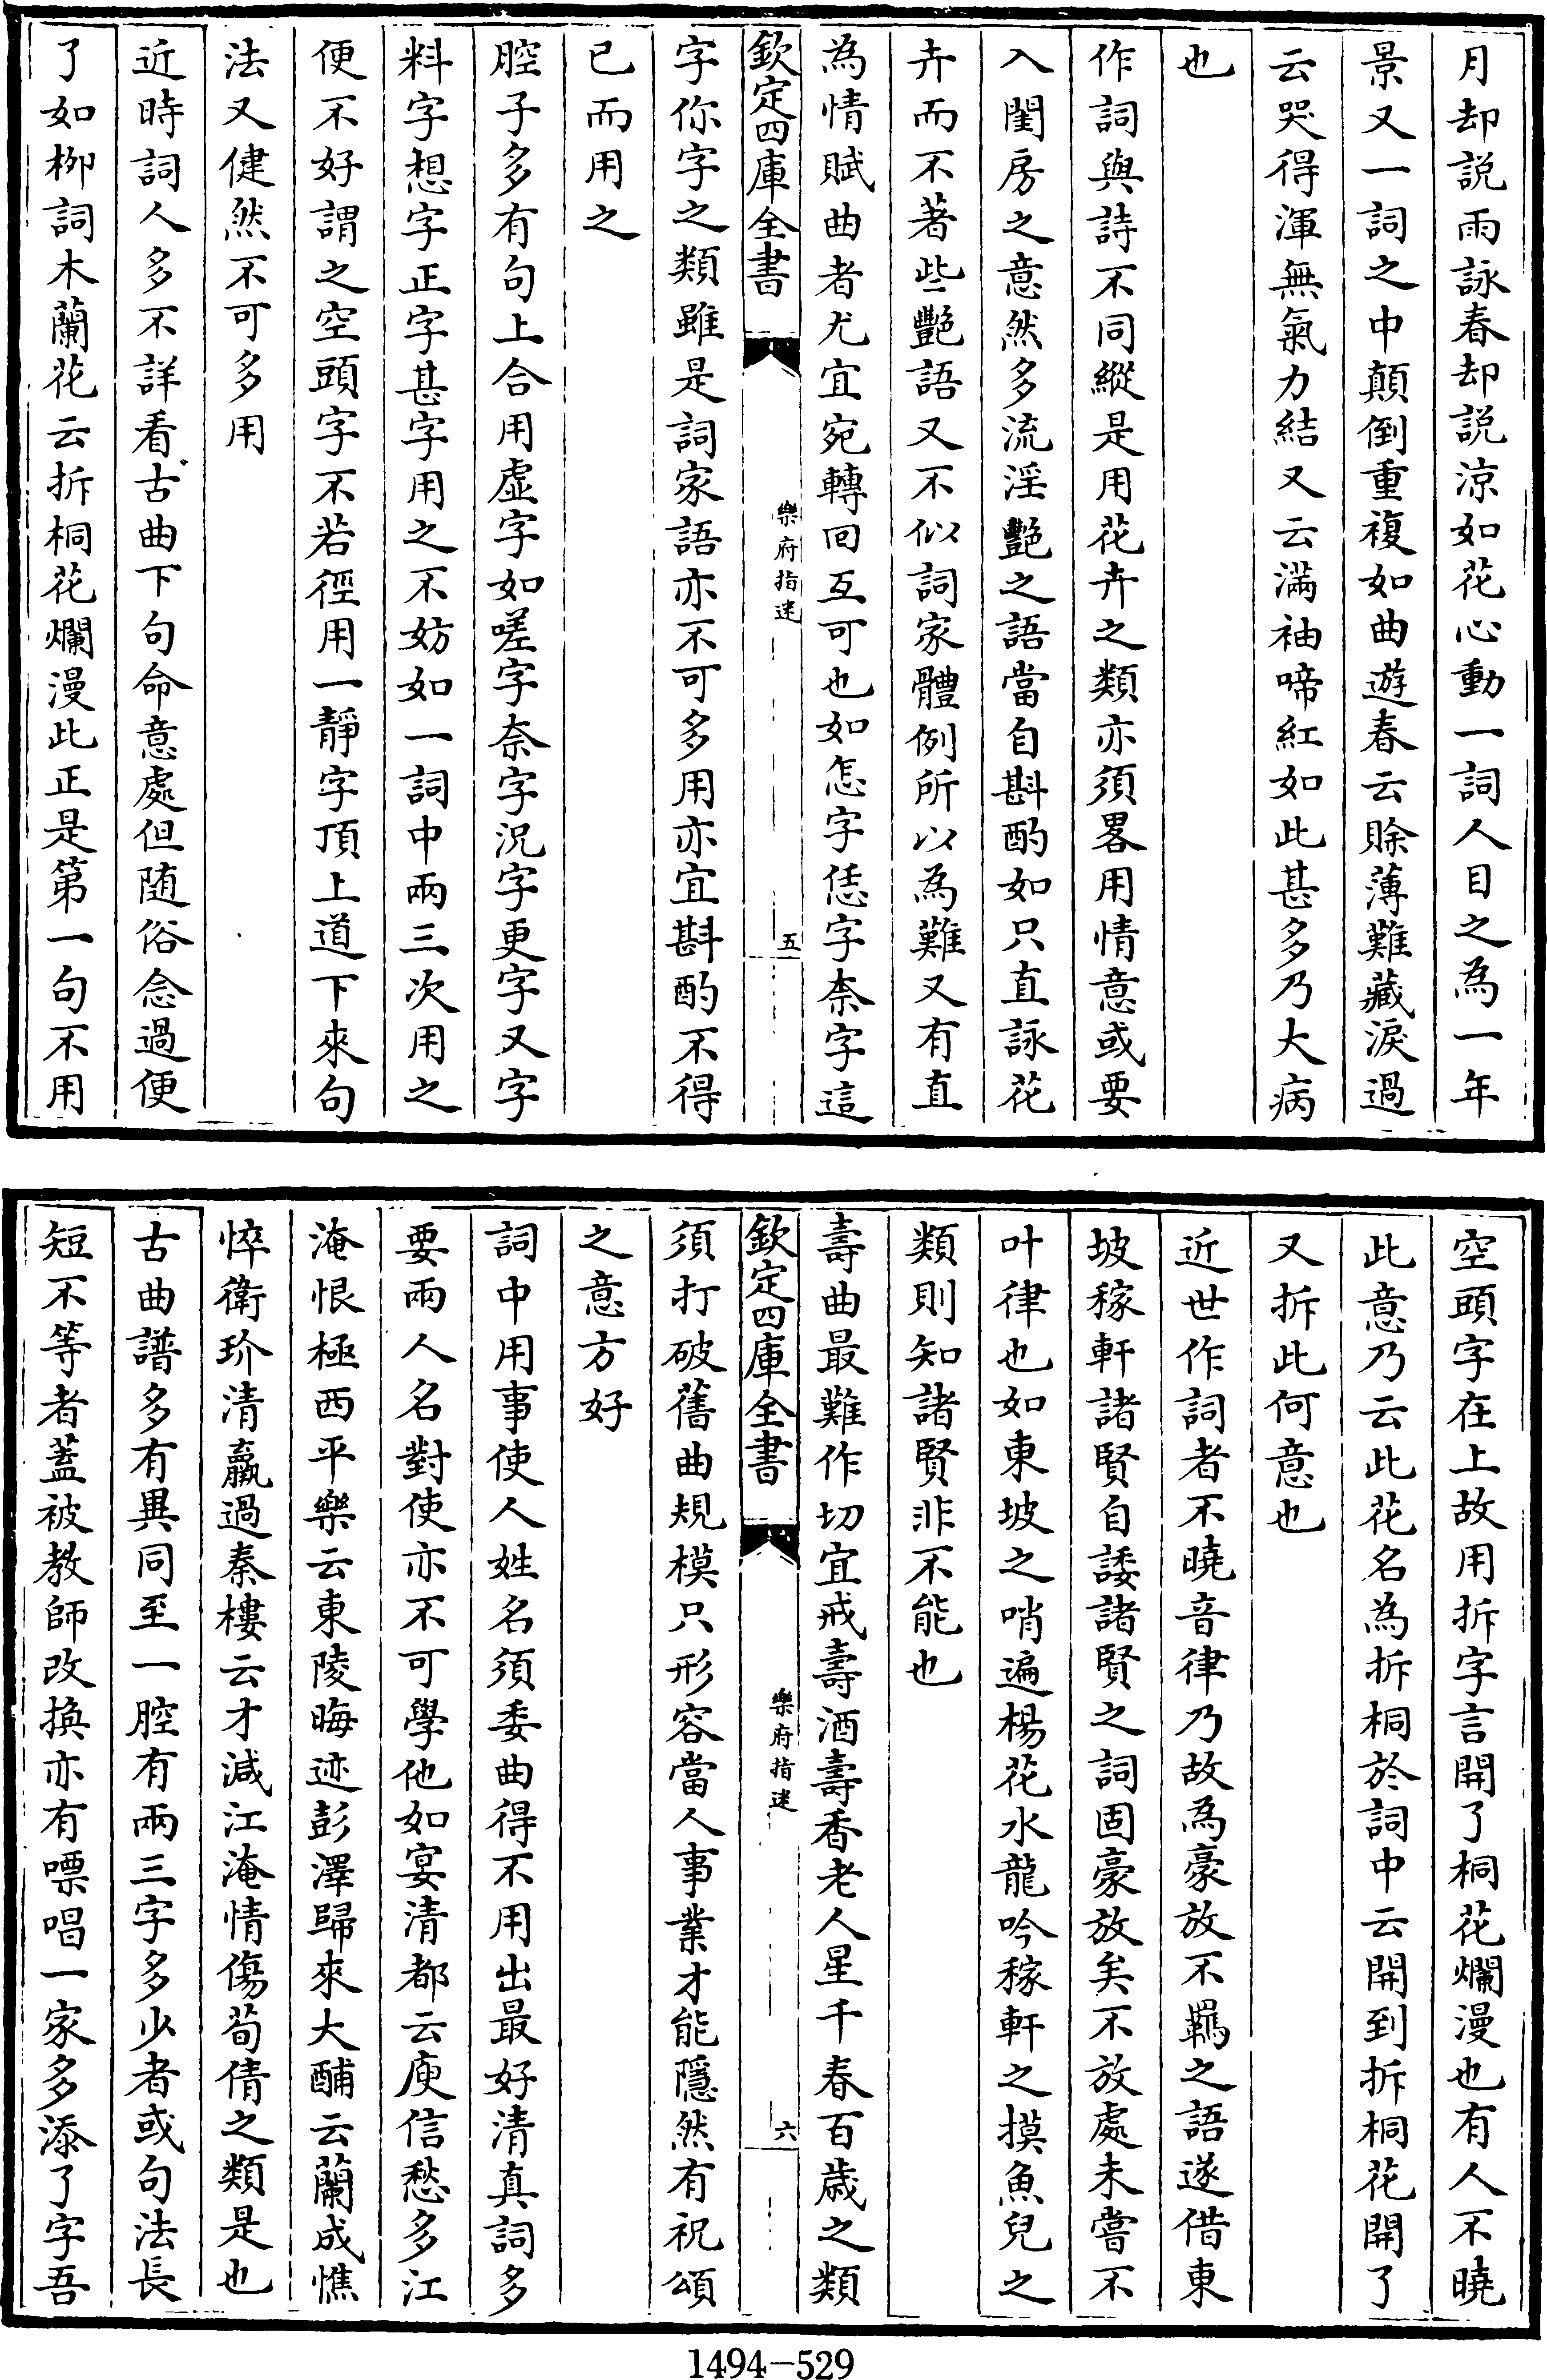 月却説雨詠春却説涼如花心動一詞人目之為一年
景又一詞之中顛倒重複如曲遊春云賖薄難藏淚過
云哭得渾無氣力結又云滿袖啼紅如此甚多乃大病
也
作詞與詩不同縱是用花卉之類亦須畧用情意或要
入閨房之意然多流淫艷之語當自斟酌如只直詠花
卉而不著些艷語又不似詞家體例所以為難又有直
為情賦曲者尤宜宛轉回互可也如怎字恁字柰字這
欽定四庫全書
樂府指迷
五
字你字之類雖是詞家語亦不可多用亦宜斟酌不得
已而用之
腔子多有句上合用虛字如嗟字奈字况字更字又字
料字想字正字甚字用之不妨如一詞中兩三次用之
便不好謂之空頭字不若徑用一靜字頂上道下來句
法又健然不可多用
近時詞人多不詳看古曲下句命意處但随俗念過便
了如桞詞木蘭花云拆桐花爛漫此正是第一句不用
空頭字在上故用拆字言開了桐花爛漫也有人不曉
此意乃云此花名為拆桐於詞中云開到拆桐花開了
又拆此何意也
近世作詞者不曉音律乃故為豪放不羈之語遂借東
坡稼軒諸賢自諉諸賢之詞固豪放矣不放處未嘗不
叶律也如東坡之哨遍楊花水龍吟稼軒之摸魚兒之
類則知諸賢非不能也
壽曲最難作切宜戒壽酒壽香老人星千春百歲之類
欽定四庫全書
樂府指迷
六
須打破舊曲規模只形容當人事業才能隱然有祝頌
之意方好
詞中用事使人姓名須委曲得不用出最好清真詞多
要兩人名對使亦不可學他如宴清都云庾信愁多江
淹恨極西平樂云東陵晦迹彭澤歸來大酺云蘭成憔
悴衛玠清羸過秦樓云才減江淹情傷荀倩之類是也
古曲譜多有異同至一腔有兩三字多少者或句法長
短不等者蓋被教師改換亦有嘌唱一家多添了字吾
1494-529